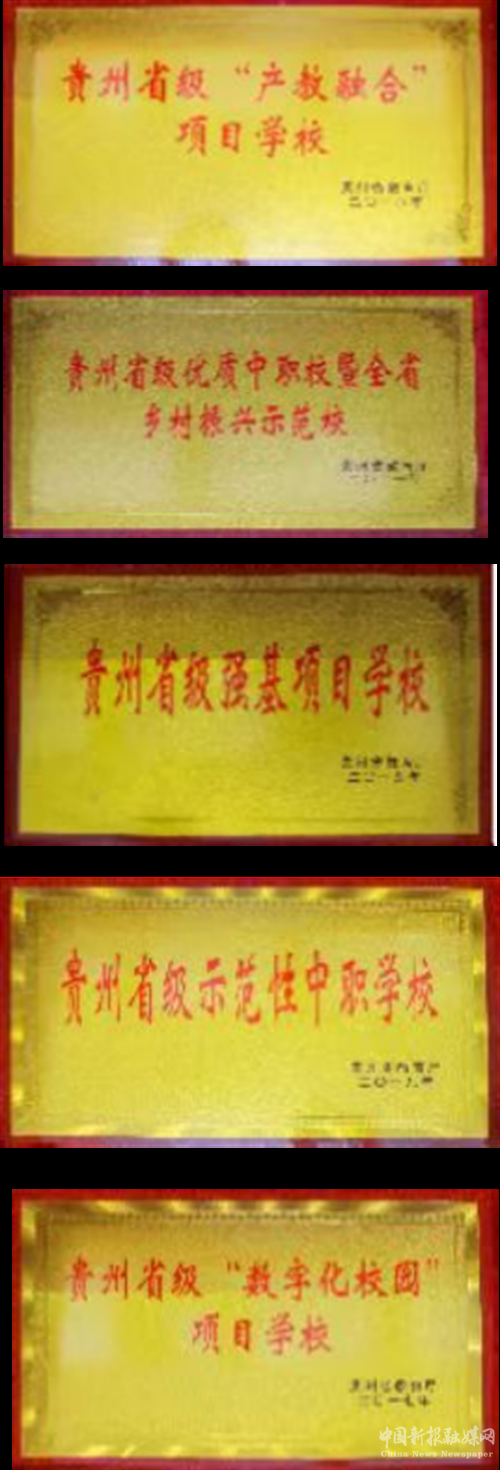 贵州省级“产教融合”
项目学校
贵州省级优质中职校暨全省
乡村振兴示范校
贵州省级强基项目学校
二〇一五年
贵州省级示范性中职学校
二〇一九年
贵州省级“数字化校园”
项目学校
贵州省教育厅
二〇一七年
中国新报融媒网
China News Newspaper